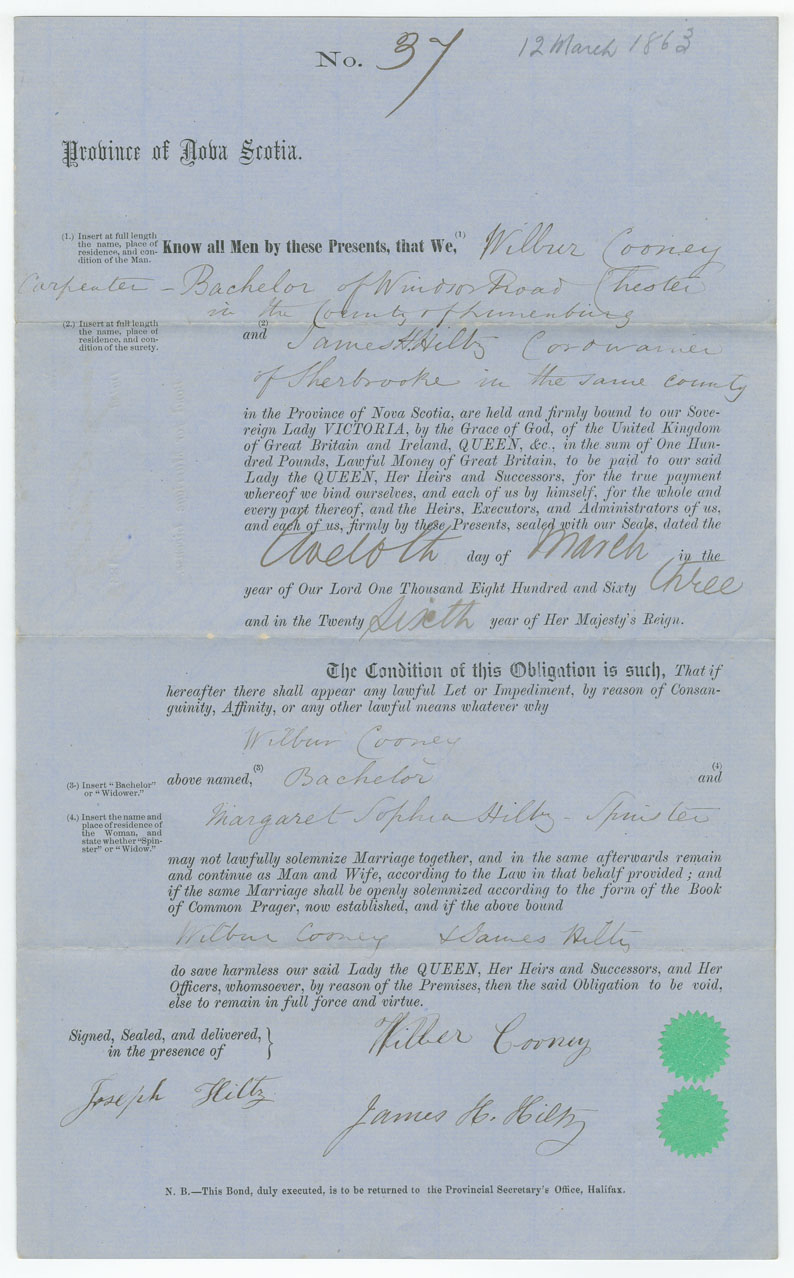 No. 37
12 March 1863
Province of Nova Scotia.
(1.) Insert at full length
the name, place of
residence, and con-
dition of the Man.
Know all Men by these Presents, that We,(1) Wilbur Cooney
Carpenter – Bachelor of Windsor Road Chester
in the County of Lunenburg
(2.) Insert at full length
the name, place of
residence, and con-
dition of the surety.
and (2) James H. Hiltz Cordwainer
of Sherbrooke in the same county
in the Province of Nova Scotia, are held and firmly bound to our Sove-
reign Lady VICTORIA, by the Grace of God, of the United Kingdom
of Great Britain and Ireland, QUEEN, &c., in the sum of One Hun-
dred Pounds, Lawful Money of Great Britain, to be paid to our said
Lady the QUEEN, Her Heirs and Successors, for the true payment
whereof we bind ourselves, and each of us by himself, for the whole and
every part thereof, and the Heirs, Executors, and Administrators of us,
and each of us, firmly by these Presents, sealed with our Seals, dated the
day of March in the
year of Our Lord One Thousand Eight Hundred and Sixty three
and in the Twenty Sixth year of Her Majesty's Reign.
The Condition of this Obligation is such, That if
hereafter there shall appear any lawful Let or Impediment, by reason of Consan-
guinity, Affinity, or any other lawful means whatever why
Wilbur Cooney
(3.) Insert "Bachelor"
or "Widower."
above named,(3) Bachelor and (4)
(4.) Insert the name and
place of residence of
the Woman, and
state whether "Spin-
ster" or "Widow."
Margaret Sophia Hiltz – Spinster
may not lawfully solemnize Marriage together, and in the same afterwards remain
and continue as Man and Wife, according to the Law in that behalf provided ; and
if the same Marriage shall be openly solemnized according to the form of the Book
of Common Prager, now established, and if the above bound
Wilbur Cooney & James Hiltz
do save harmless our said Lady the QUEEN, Her Heirs and Successors, and Her
Officers, whomsoever, by reason of the Premises, then the said Obligation to be void,
else to remain in full force and virtue.
Signed, Sealed, and delivered,
in the presence of
Wilber Cooney
Joseph Hiltz
James H. Hiltz
N. B.—This Bond, duly executed, is to be returned to the Provincial Secretary's Office, Halifax.